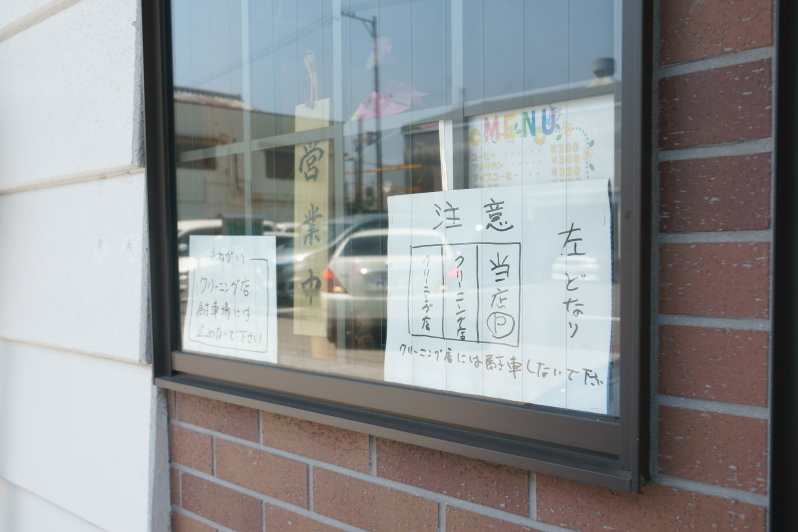 営業中
MENU
コーヒー ¥300
¥300
アイスコーヒー ¥350
注意
左どなり
当店Ⓟ
クリーニング店
クリーニング店
クリーニング店には駐車しないで下さい
おねがい
クリーニング店
駐車場には
止めないで下さい